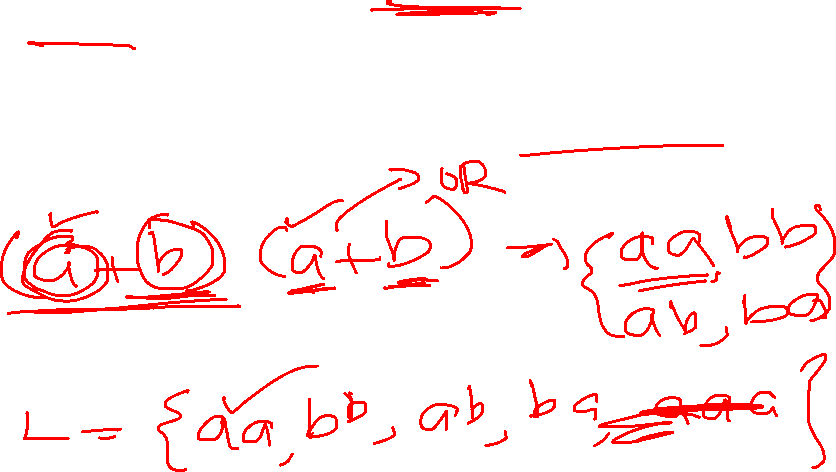 OR
(a+b) (a+b) → {aa, bb
ab, ba}
L = {aa, bb, ab, ba, aaa}